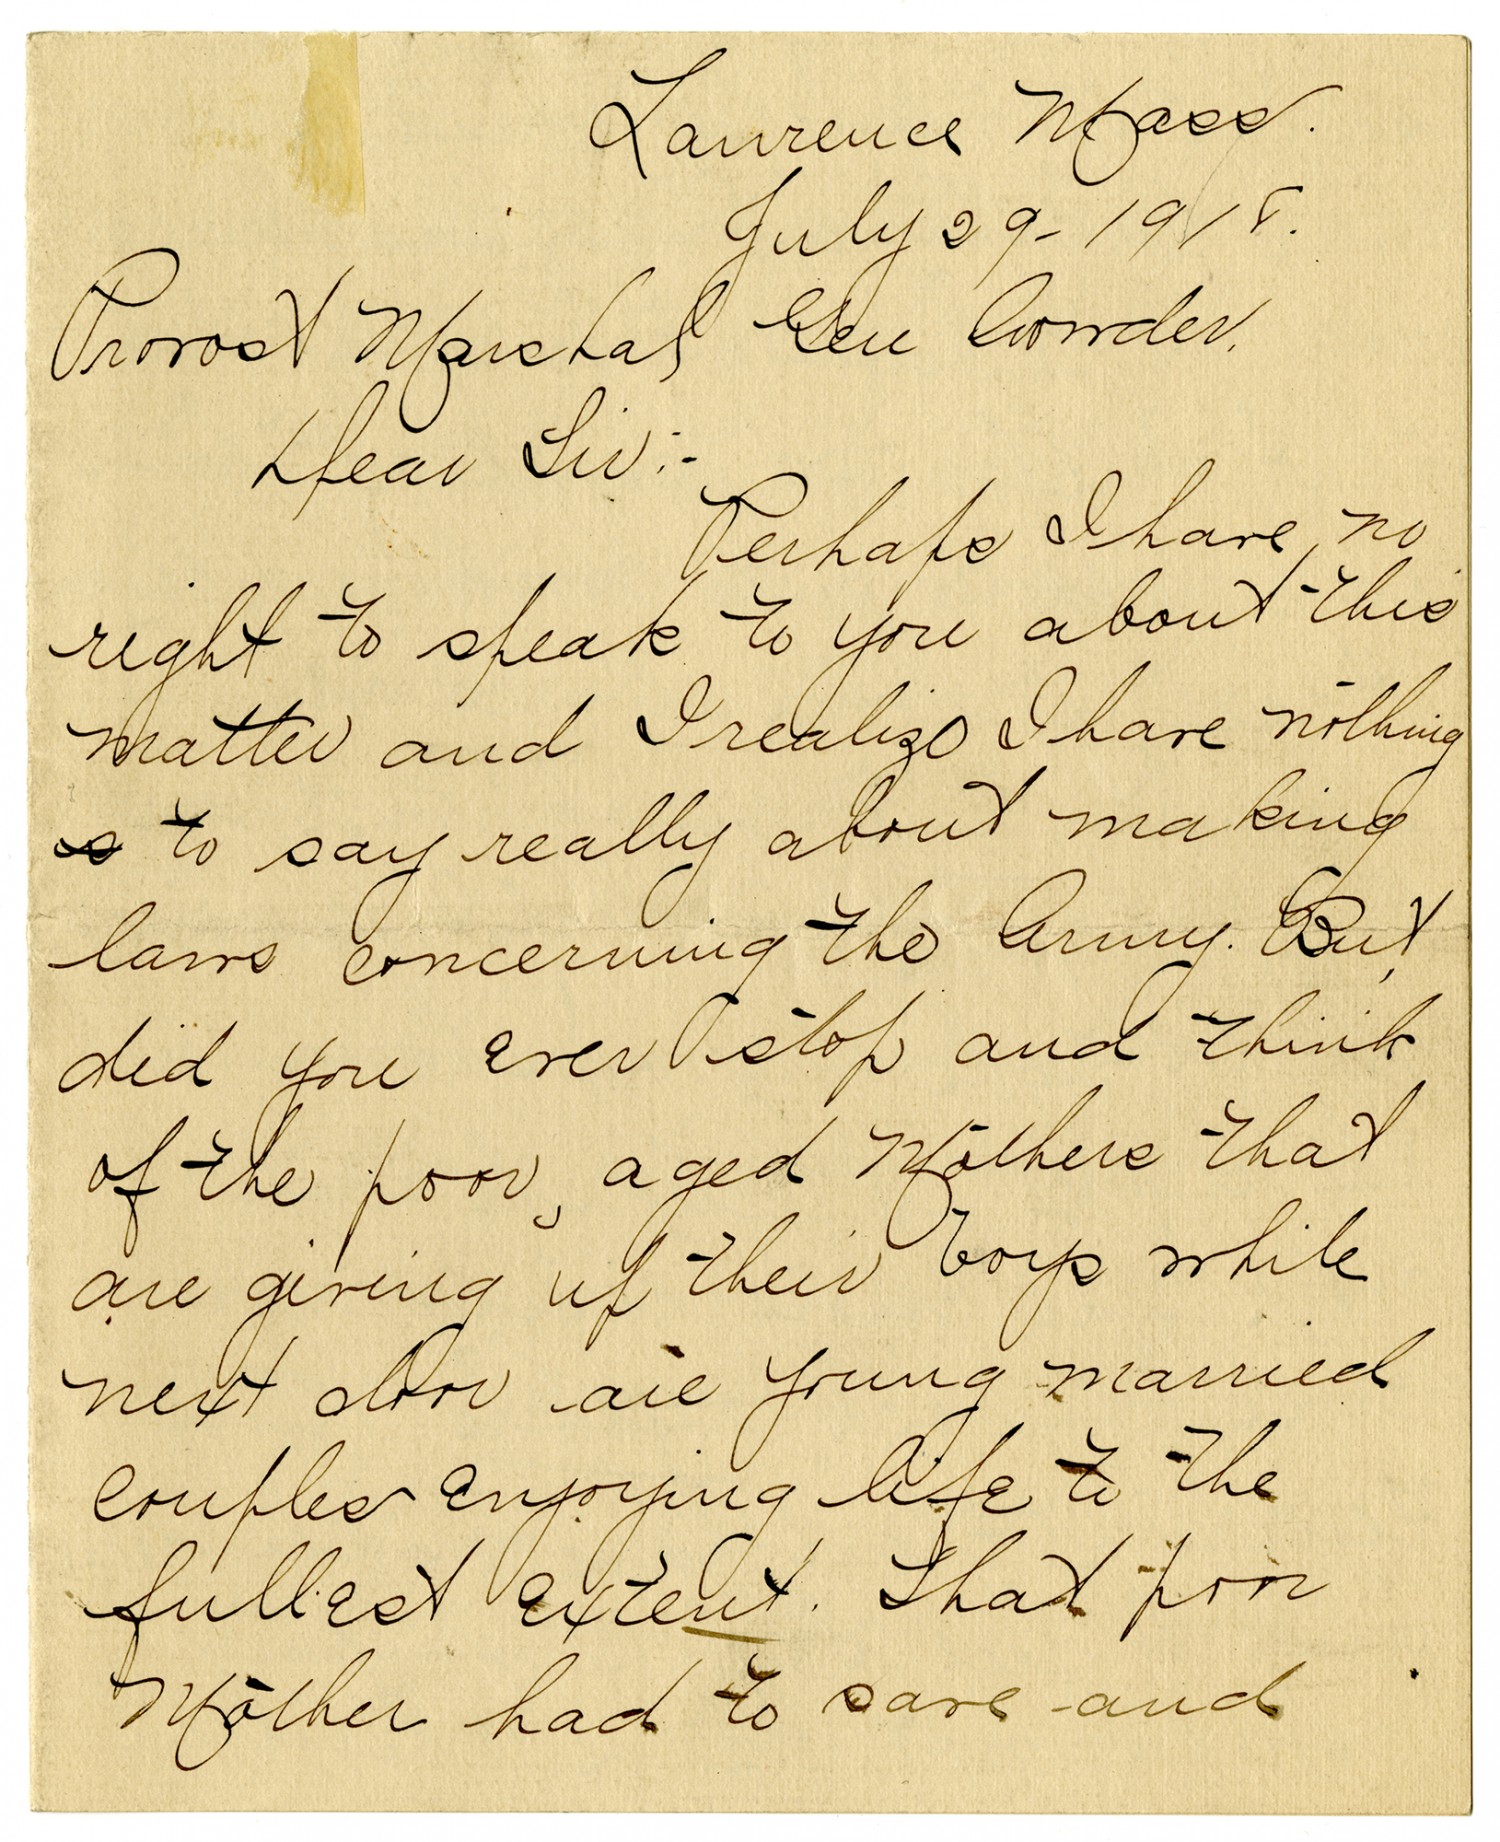 Lawrence Mass.
July 29-1918.
Provost Marshal Gen Crowder.
Dear Sir:-
Perhaps I have no
right to speak to you about this
matter and I realize I have nothing
to say really about making
laws concerning the Army. But,
did you ever stop and think
of the poor, aged Mothers that
are giving up their boys while
next door are young married
couples enjoying life to the
fullest extent. That poor
Mother had to save and